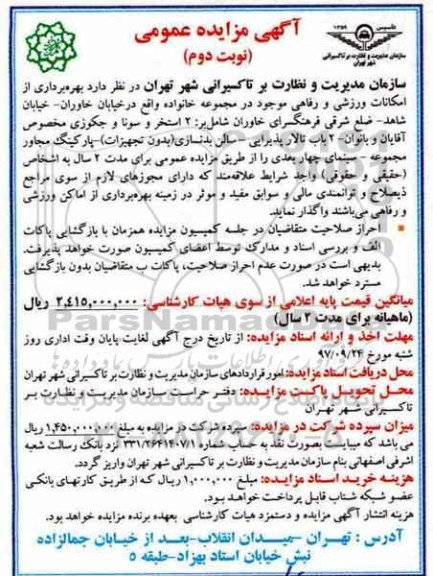 آگهی مزایده عمومی
(نوبت دوم)
تاسیس ۱۳۵۹
سازمان مدیریت و نظارت بر تاکسیرانی
شهر تهران
سازمان مدیریت و نظارت بر تاکسیرانی شهر تهران در نظر دارد بهره‌برداری از
امکانات ورزشی و رفاهی موجود در مجموعه خانواده واقع درخیابان خاوران- خیابان
شاهد- ضلع شرقی فرهنگسرای خاوران شامل‌بر: ۲ استخر و سونا و جکوزی مخصوص
آقایان و بانوان- ۲ باب تالار پذیرایی - سالن بدنسازی(بدون تجهیزات)-پارکینگ مجاور
مجموعه - سینمای چهار بعدی را از طریق مزایده عمومی برای مدت ۲ سال به اشخاص
(حقیقی و حقوقی) واجد شرایط علاقه‌مند که دارای مجوزهای لازم از سوی مراجع
ذیصلاح و توانمندی مالی و سوابق مفید و موثر در زمینه بهره‌برداری از اماکن ورزشی
و رفاهی می‌باشند واگذار نماید.
احراز صلاحیت متقاضیان در جلسه کمیسیون مزایده همزمان با بازگشایی پاکات
الف و بررسی اسناد و مدارک توسط اعضای کمیسیون صورت خواهد پذیرفت.
بدیهی است در صورت عدم احراز صلاحیت، پاکات ب متقاضیان بدون بازگشایی
مسترد خواهد شد.
میانگین قیمت پایه اعلامی از سوی هیات کارشناسی: ۲,۴۱۵,۰۰۰,۰۰۰ ریال
(ماهیانه برای مدت ۲ سال)
مهلت اخذ و ارائه اسناد مزایده: از تاریخ درج آگهی لغایت پایان وقت اداری روز
شنبه مورخ ۹۷/۰۹/۲۴
محل دریافت اسناد مزایده: امور قراردادهای سازمان مدیریت و نظارت بر تاکسیرانی شهر تهران
محل تحویل پاکت مزایده: دفتر حراست سازمان مدیریت و نظارت بر
تاکسیرانی شهر تهران
میزان سپرده شرکت در مزایده: سپرده شرکت در مزایده به مبلغ ۱,۴۵۰,۰۰۰,۰۰۰ ریال
می باشد که میبایست بصورت نقد به حساب شماره ۳۳۱/۲۶۴۱۴۰۷/۱ نزد بانک رسالت شعبه
اشرفی اصفهانی بنام سازمان مدیریت و نظارت بر تاکسیرانی شهر تهران واریز گردد.
هزینه خرید اسناد مزایده: مبلغ ۱,۰۰۰,۰۰۰ ریال که از طریق کارتهای بانکی
عضو شبکه شتاب قابل پرداخت خواهد بود.
هزینه انتشار آگهی مزایده و دستمزد هیات کارشناسی بعهده برنده مزایده خواهد بود.
آدرس : تهران -میدان انقلاب-بعد از خیابان جمالزاده
نبش خیابان استاد بهزاد-طبقه ۵